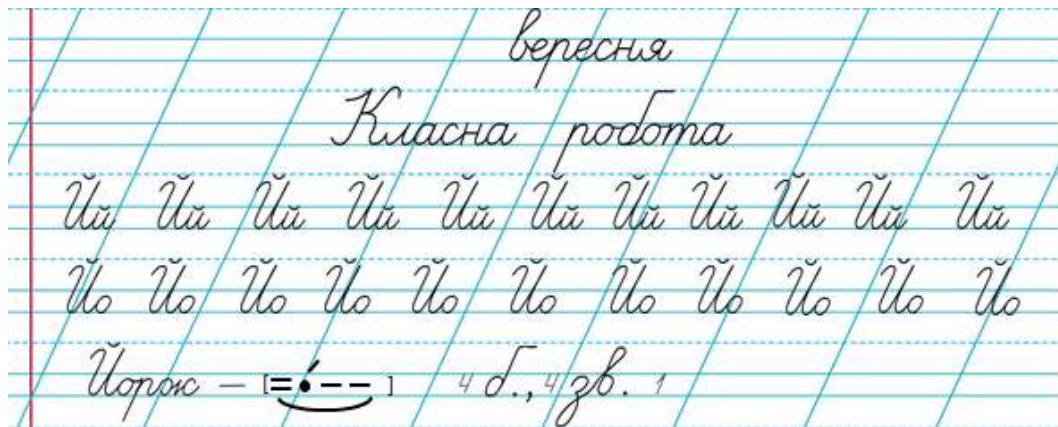 вересня
Класна робота
Йй Йй Йй Йй Йй Йй Йй Йй Йй Йй Йй
Йо Йо Йо Йо Йо Йо Йо Йо Йо Йо Йо
Йорж – [=•́– – ] 4 б., 4 зв. 1